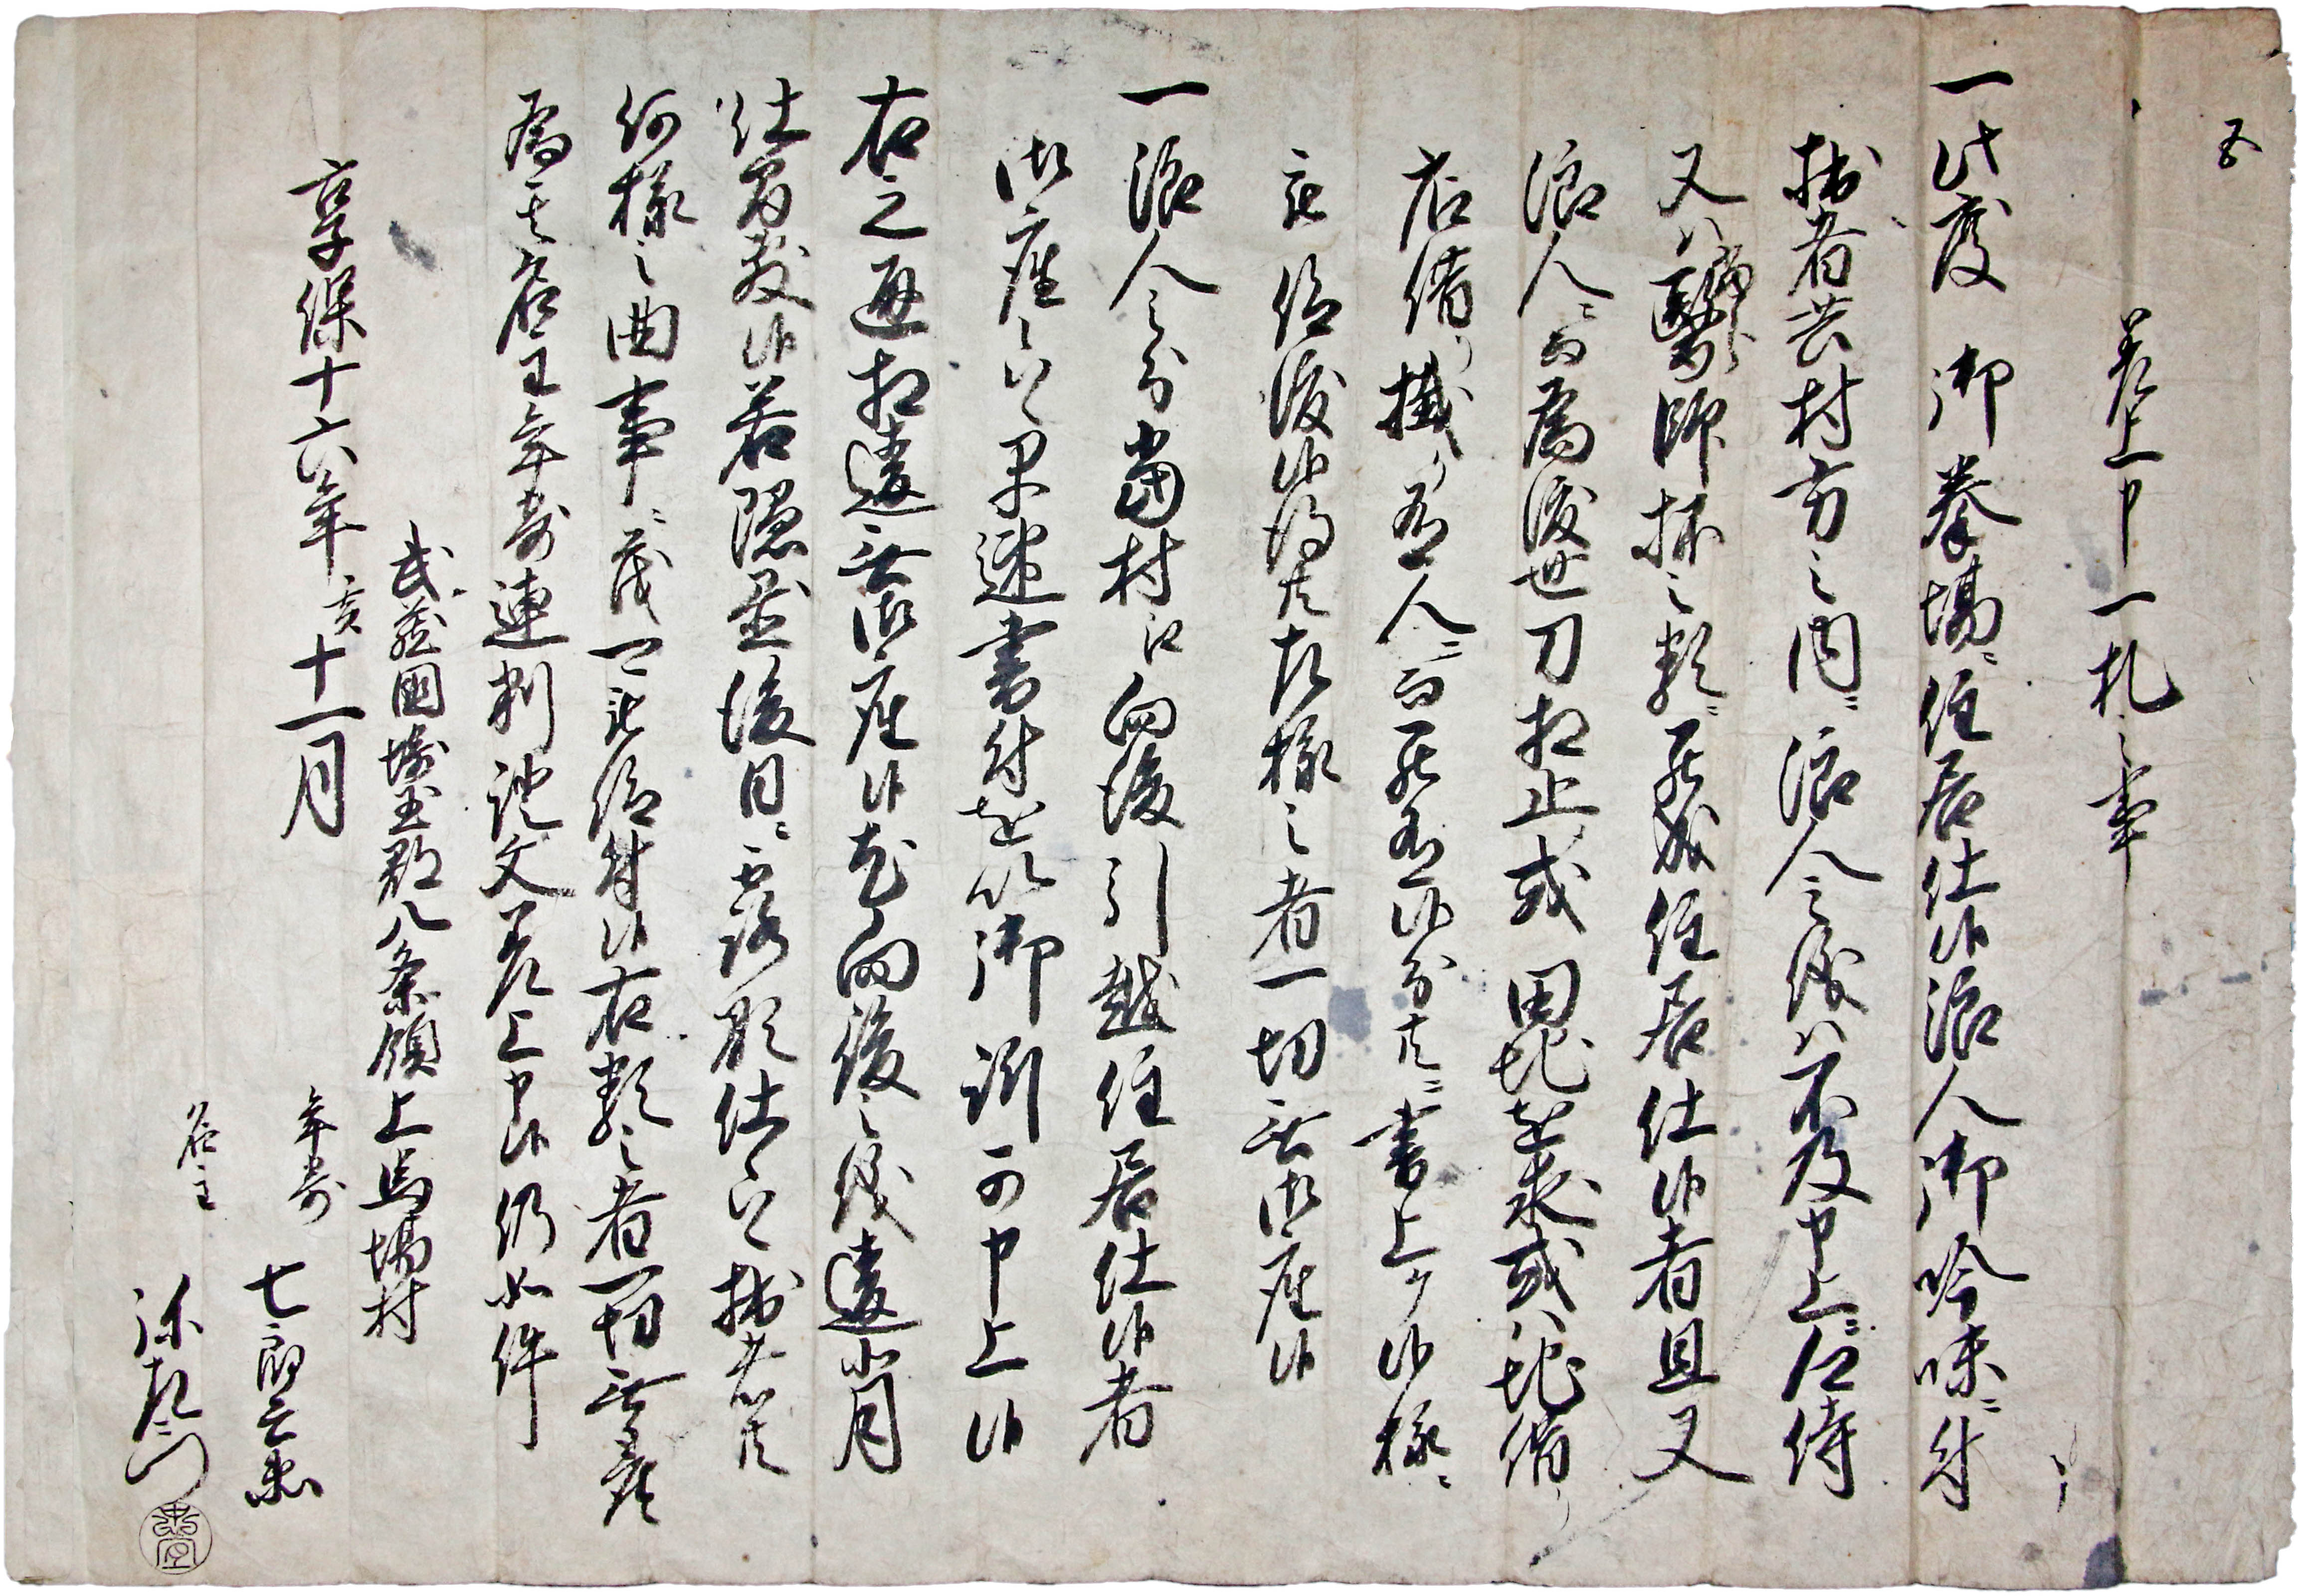 差上申一札之事
一此度 御拳場ニ住居仕候浪人御吟味ニ付
拙者共村方之内ニ浪人之儀ハ不及申上ニ仁侍
又ハ医師抔之類ニ罷成住居仕候者且又
浪人ニ而為渡世刀相止或ハ田地を求或ハ地借り
店借り掛り人ニ而罷有候分共ニ書上ヶ候様ニ
被仰渡候得共左様之者一切無御座候
一浪人之分当村江向後引越住居仕候者
御座候ハヽ早速書付を以御訴可申上候
右之通相違無御座候尤向後之儀違背
仕間敷候若隠置後日ニ露顕仕候ハヽ拙者共
何様之曲事ニ茂可被仰付候右類之者一切無御座
為其名主年寄連判証文差上申候仍如件
武蔵国埼玉郡八条領上馬場村
享保十六年亥十一月
年寄 七郎兵衛
名主